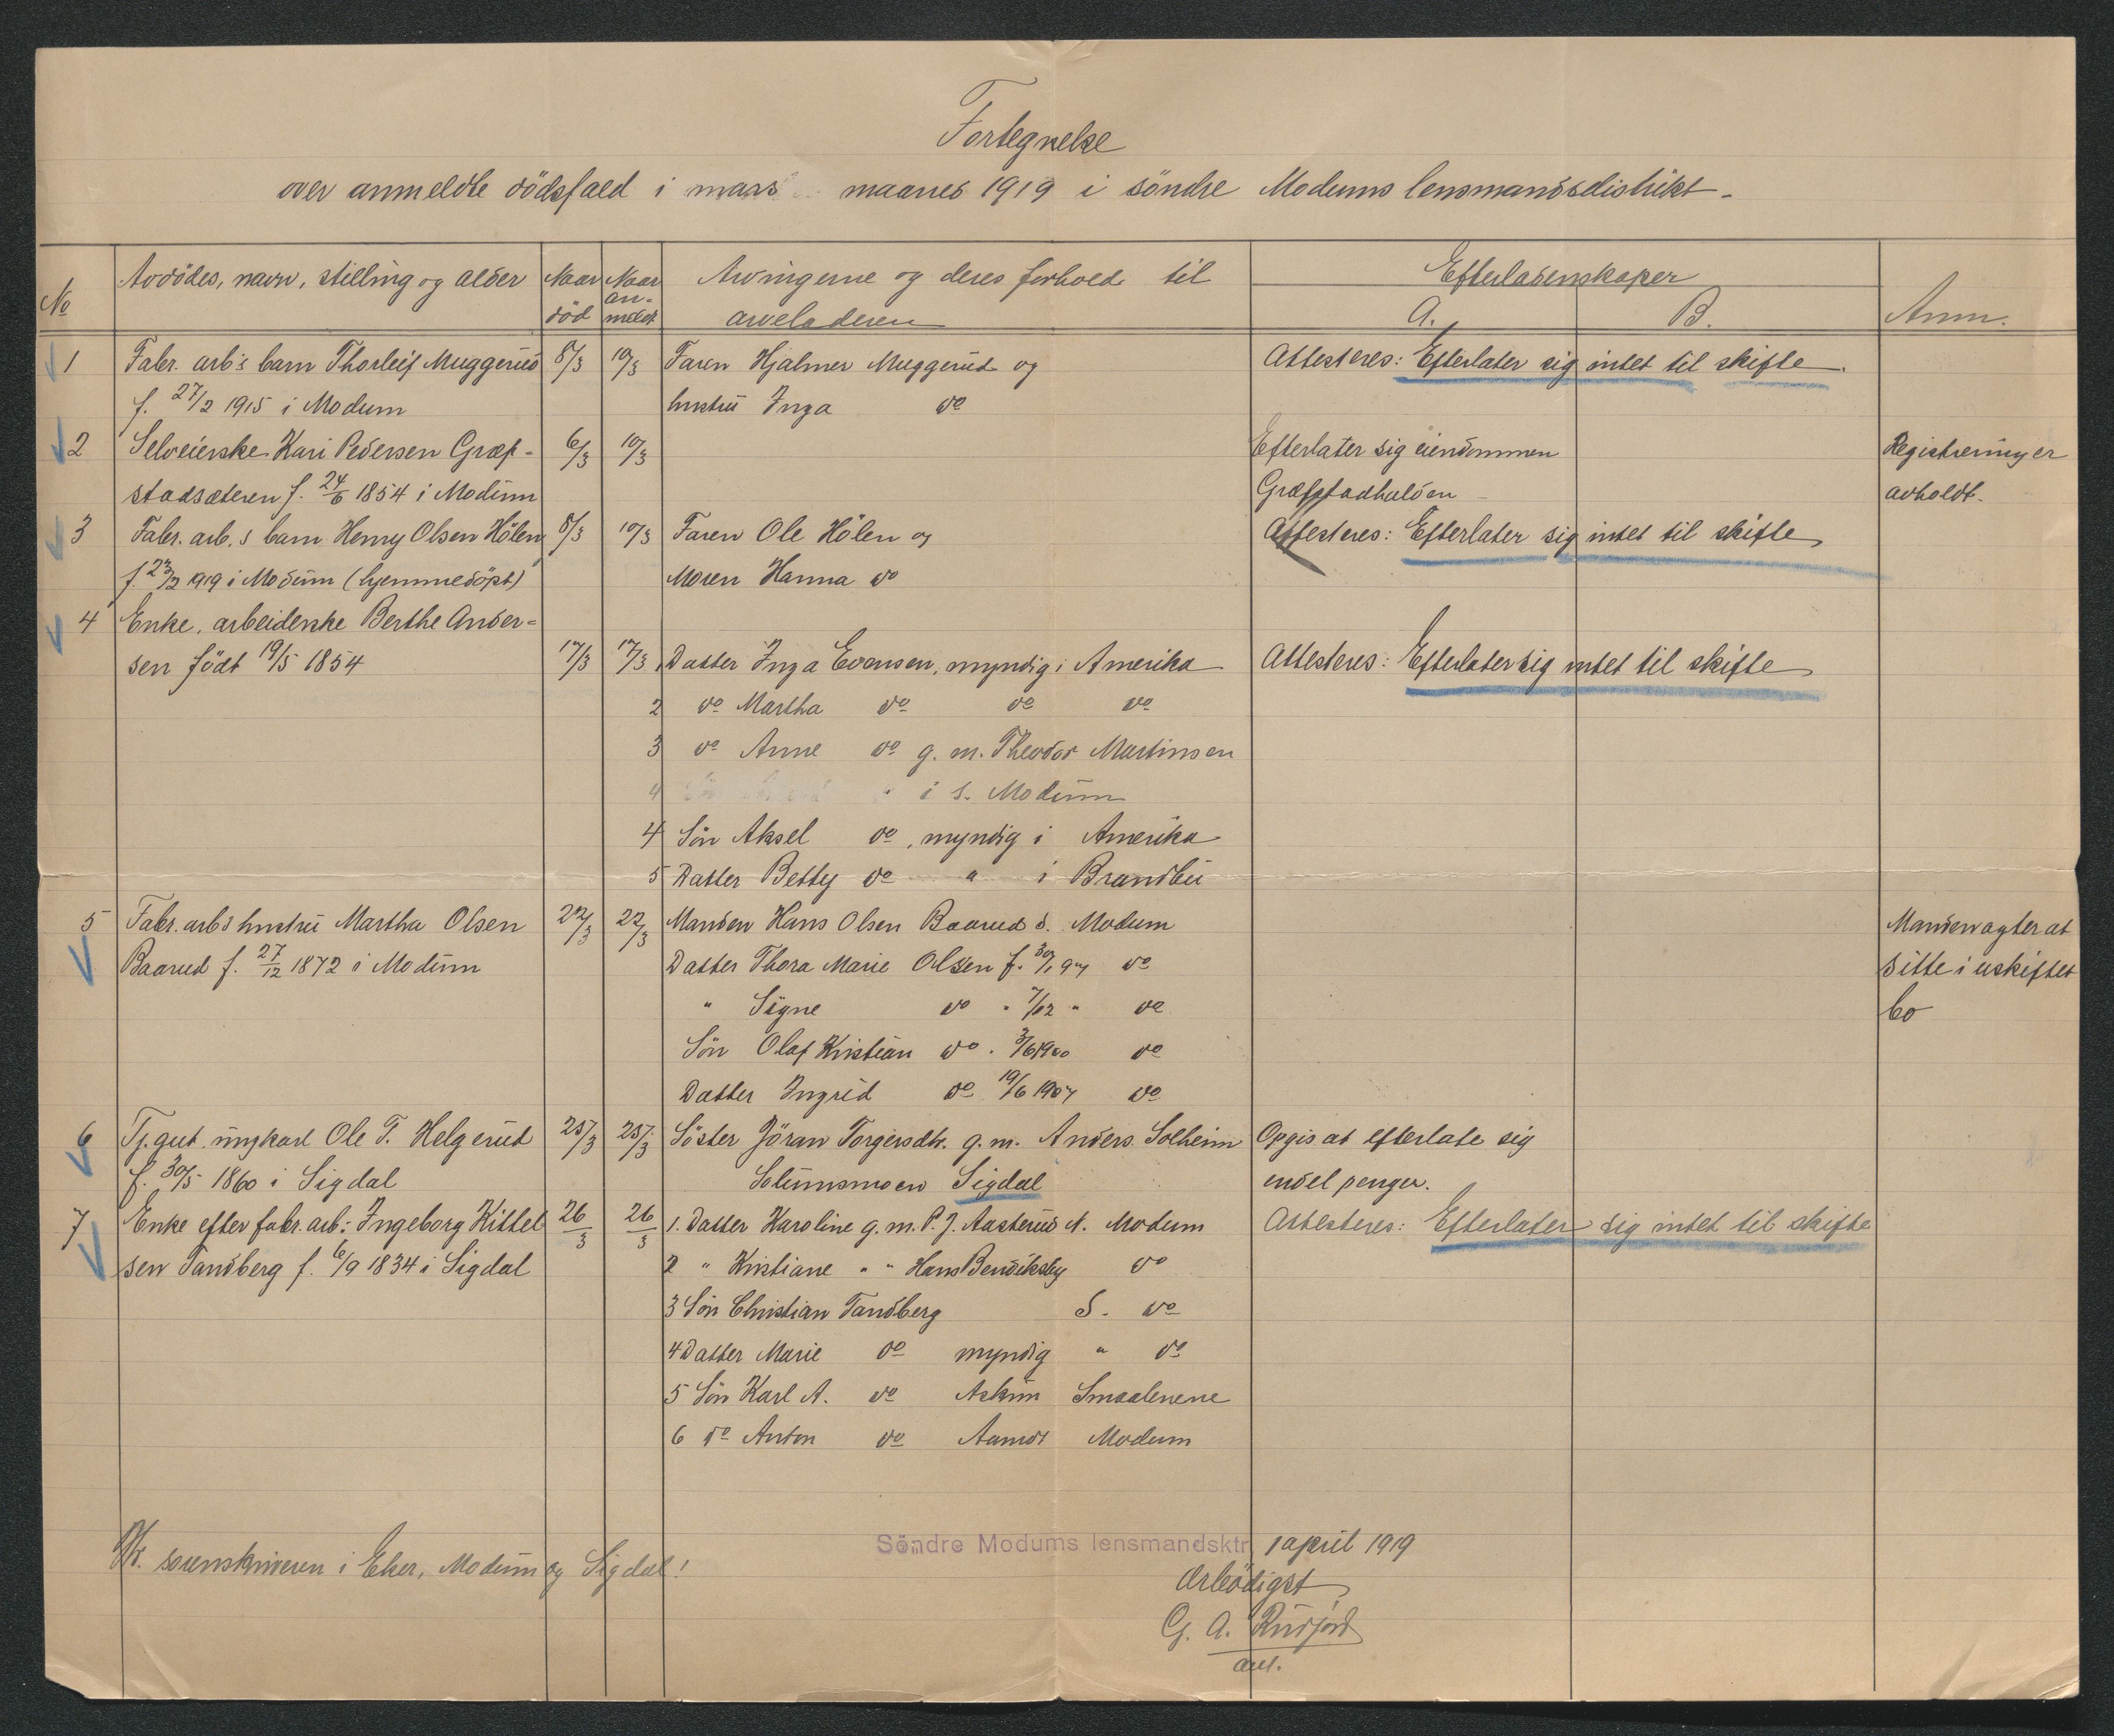 Fortegnelse
over anmeldte dödsfald i mars maaned 1919 i söndre Modums lensmandsdistrikt.
No Avdödes, navn, stilling og alder Naar död Naar an-meldt Arvingerne og deres forhold til arveladeren Efterladenskaper A. B. Anm.
1 Fabr. arb's barn Thorleif Muggerud 8/3 10/3 Faren Hjalmer Muggerud og Attesteres: Efterlater sig intet til skifte.
f. 27/2 1915 i Modum hustru Inga do
2 Selveierske Kari Pedersen Græf- 6/3 10/3 Efterlater sig eiendommen Registrering er
stadsæteren f. 24/6 1854 i Modum Græfstadhalden avholdt.
3 Fabr. arb.s barn Henry Olsen Hölen 8/3 10/3 Faren Ole Hölen og Attesteres: Efterlater sig intet til skifte
1919 i Modum (hjemmedöpt) Moren Hanna do
4 Enke, arbeiderske Berthe Ander-
sen födt 19/5 1854 17/3 17/3 Datter Inga Evensen, myndig i Amerika Attesteres: Efterlater sig intet til skifte
2 do Martha do do do
3 do Anne do g. m. Theodor Martinsen
4 " i s. Modum
4 Sön Aksel do, myndig i Amerika
5 Datter Betty do " i Brandbu
5 Fabr. arbs hustru Martha Olsen 22/3 22/3 Manden Hans Olsen Baarud s. Modum Manden agter at
Baarud f. 27/12 1872 i Modum Datter Thora Marie Olsen f. do sitte i uskiftet
" Signe do " 7/12 " do bo
Sön Olaf Kristian do " 3/6 1900 do
Datter Ingrid do 19/6 1907 do
6 Tj.gut. ungkarl Ole T. Helgerud 25/3 25/3 Söster Jöran Torgersdtr. g. m. Anders Solheim Opgis at efterlate sig
f. 30/5 1860 i Sigdal Solumsmoen Sigdal endel penger.
7 Enke efter fabr. arb: Ingeborg Kittel- 26/3 26/3 1. Datter Karoline g. m. P. J. Aasterud N. Modum Attesteres: Efterlater sig intet til skifte
sen Tandberg f. 6/9 1834 i Sigdal 2 " Kristiane " " Hans Bendiksby do
3 Sön Christian Tandberg S. do
4 Datter Marie do myndig " do
5 Sön Karl A. do Askim Smaalenene
6 do Anton do Aamot Modum
Söndre Modums lensmandsktr. 1 april 1919
Hr. sorenskriveren i Eker, Modum og Sigdal!
Ærbödigst
G. A. Rudfjord